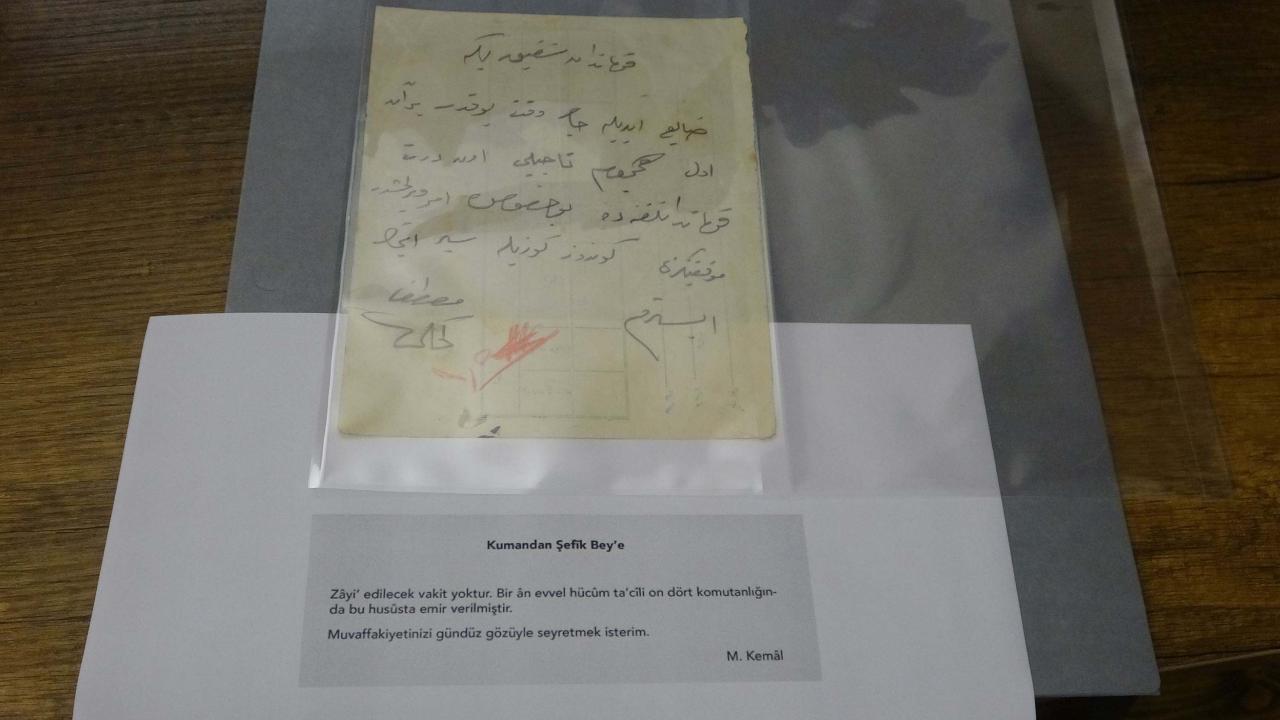 قوماندان شفيق بكه
ضايع ايديله جك وقت يوقدر بر آن
اول هجوم تاجيلى اون درت
قوماندانلغنده بو خصوص امر ويرلمشدر
موفقيتكزى كوندوز كوزيله سير ايتمك
ايسترم
مصطفى
كمال
Kumandan Şefîk Bey’e
Zâyi’ edilecek vakit yoktur. Bir ân evvel hücûm ta’cîli on dört komutanlığın-
da bu husûsta emir verilmiştir.
Muvaffakiyetinizi gündüz gözüyle seyretmek isterim.
M. Kemâl